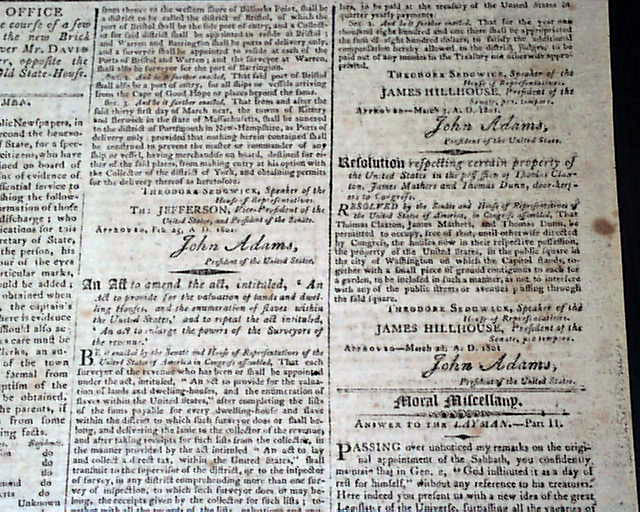 OFFICE
the course of a few
the new Brick
over Mr. DAVID
opposite the
Old State-House.
MAN.
public Newspapers, in
second the honor
of State, for a spe-
citizens who have
ined on board of
of evidence of
essential service to
shing the follow-
formation of those
discharge; who
ications for this
cretary of State,
the person, his
our of the eyes
rticular marks,
ould be added;
obtained when
the captain's
here is evidence
should also ac-
s care must be
Clerks, an au-
of the town
farmed from
aptism of the
be obtained,
the parents, if
from some
ing facts.
do
do
do
arts do
Unknown
from thence to the western shore of Bullocks Point, shall be
a district to be called the district of Bristol, of which the
port of Bristol shall be the sole port of entry, and a Collect-
or for said district shall be appointed to reside at Bristol;
and Warren and Barrington shall be ports of delivery only,
and a surveyor shall be appointed to reside at each of the
Ports of Bristol and Warren; and the surveyor at Warren,
shall also be surveyor for the port of Barrington.
Sec. 2. And be it further enacted, That said port of Bristol
shall also be a port of entry, for all ships or vessels arriving
from the Cape of Good Hope or places beyond the same.
Sec. 3. And be it further enacted, That from and after the
said thirty first day of March next, the towns of Kittery
and Berwick in the state of Massachusetts, shall be annexed
to the district of Portsmouth in New-Hampshire, as Ports of
delivery only: provided that nothing herein contained shall
be construed to prevent the master or commander of any
ship or vessel, having merchandise on board, destined for ei-
ther of the said places, from making entry at his option with
the Collector of the district of York, and obtaining permits
for the delivery thereof as heretofore.
THEODORE SEDGWICK, Speaker of the
House of Representatives.
TH: JEFFERSON, Vice-President of the
United States, and President of the Senate.
APPROVED, Feb. 25, A. D. 1801.
John Adams,
President of the United States.
An Act to amend the act, intituled, ' An
Act to provide for the valuation of lands and dwel-
ling houses, and the enumeration of slaves within the
United States,' and to repeat the act intituled,
' An act to enlarge the powers of the Surveyors of
the revenue.'
BE it enacted by the Senate and House of Representatives of the
United States of America in Congress assembled, That each
surveyor of the revenue who has been or shall be appointed
under the act, intituled, " An act to provide for the valua-
tion of lands and dwelling-houses, and the enumeration of
slaves within the United States," after completing the lists
of the sums payable for every dwelling-house and slave
within the district to which such surveyor does or shall be-
long, and delivering the same to the collector of the revenue;
and after taking receipts for such lists from the collector, in
the manner provided by the act intituled " An act to lay
and collect a direct tax, within the United States," shall
transmit to the supervisor of the district, or to the inspector
of survey, in any district comprehending more than one sur-
vey of inspection, to which such surveyor does or may be-
long, the receipts given by the collector for such lists; to-
gether with all the records of the lists, valuations and
lars, to be paid at the treasury of the United States in
quarter yearly payments.
Sec. 2. And be it further enacted, That for the year one
thousand eight hundred and one there shall be appropriated
the sum of eight hundred dollars, to satisfy the additional
compensation hereby allowed to the district judges; to be
paid out of any monies in the Treasury not otherwise appro-
priated.
THEODORE SEDGWICK, Speaker of the
House of Representatives.
JAMES HILLHOUSE, President of the
Senate, pro tempore.
APPROVED—March 3, A. D. 1801.
John Adams,
President of the United States.
Resolution respecting certain property of
the United States in the possession of Thomas Clax-
ton, James Mathers and Thomas Dunn, door-keep-
ers to Congress.
RESOLVED by the Senate and House of Representatives of
the United States of America, in Congress assembled, That
Thomas Claxton, James Mathers, and Thomas Dunn, be
permitted to occupy, free of rent, until otherwise directed
by Congress, the houses now in their respective possession,
the property of the United States, in the public square in
the city of Washington on which the Capitol stands, to-
gether with a small piece of ground contiguous to each for
a garden, to be included in such a manner, as not to interfere
with any of the public streets or avenues passing through
the said square.
THEODORE SEDGWICK, Speaker of the
House of Representatives.
JAMES HILLHOUSE, President of the
Senate, pro tempore.
APPROVED—March 2d, A. D. 1801
John Adams,
President of the United States.
Moral Miscellany.
ANSWER TO THE LAYMAN.—Part II.
PASSING over unnoticed my remarks on the origi-
nal appointment of the Sabbath, you confidently
maintain that in Gen. 2, " God instituted it as a day of
rest for himself," without any reference to his creatures.
Here indeed you present us with a new idea of the great
Legislator of the Universe, surpassing all the vacaries of